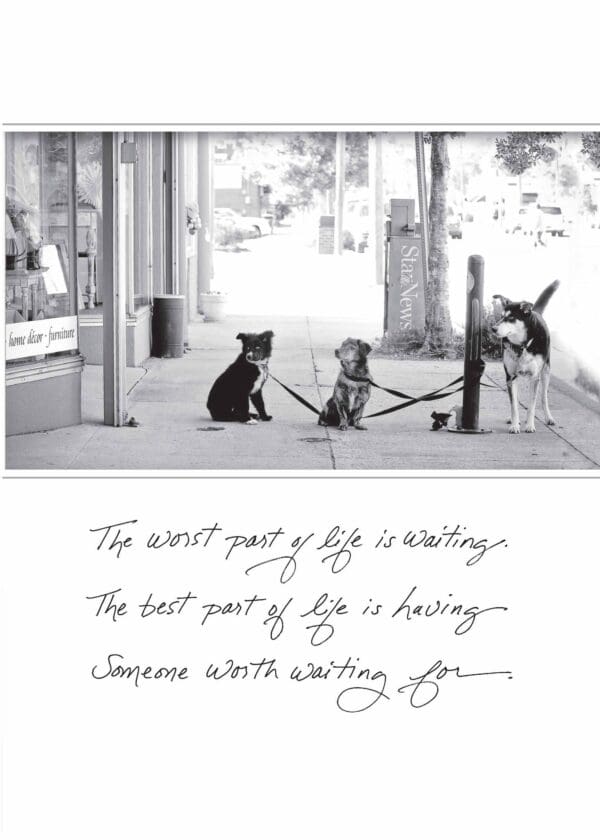 home décor - furniture
Star News
The worst part of life is waiting.
The best part of life is having
Someone worth waiting for.